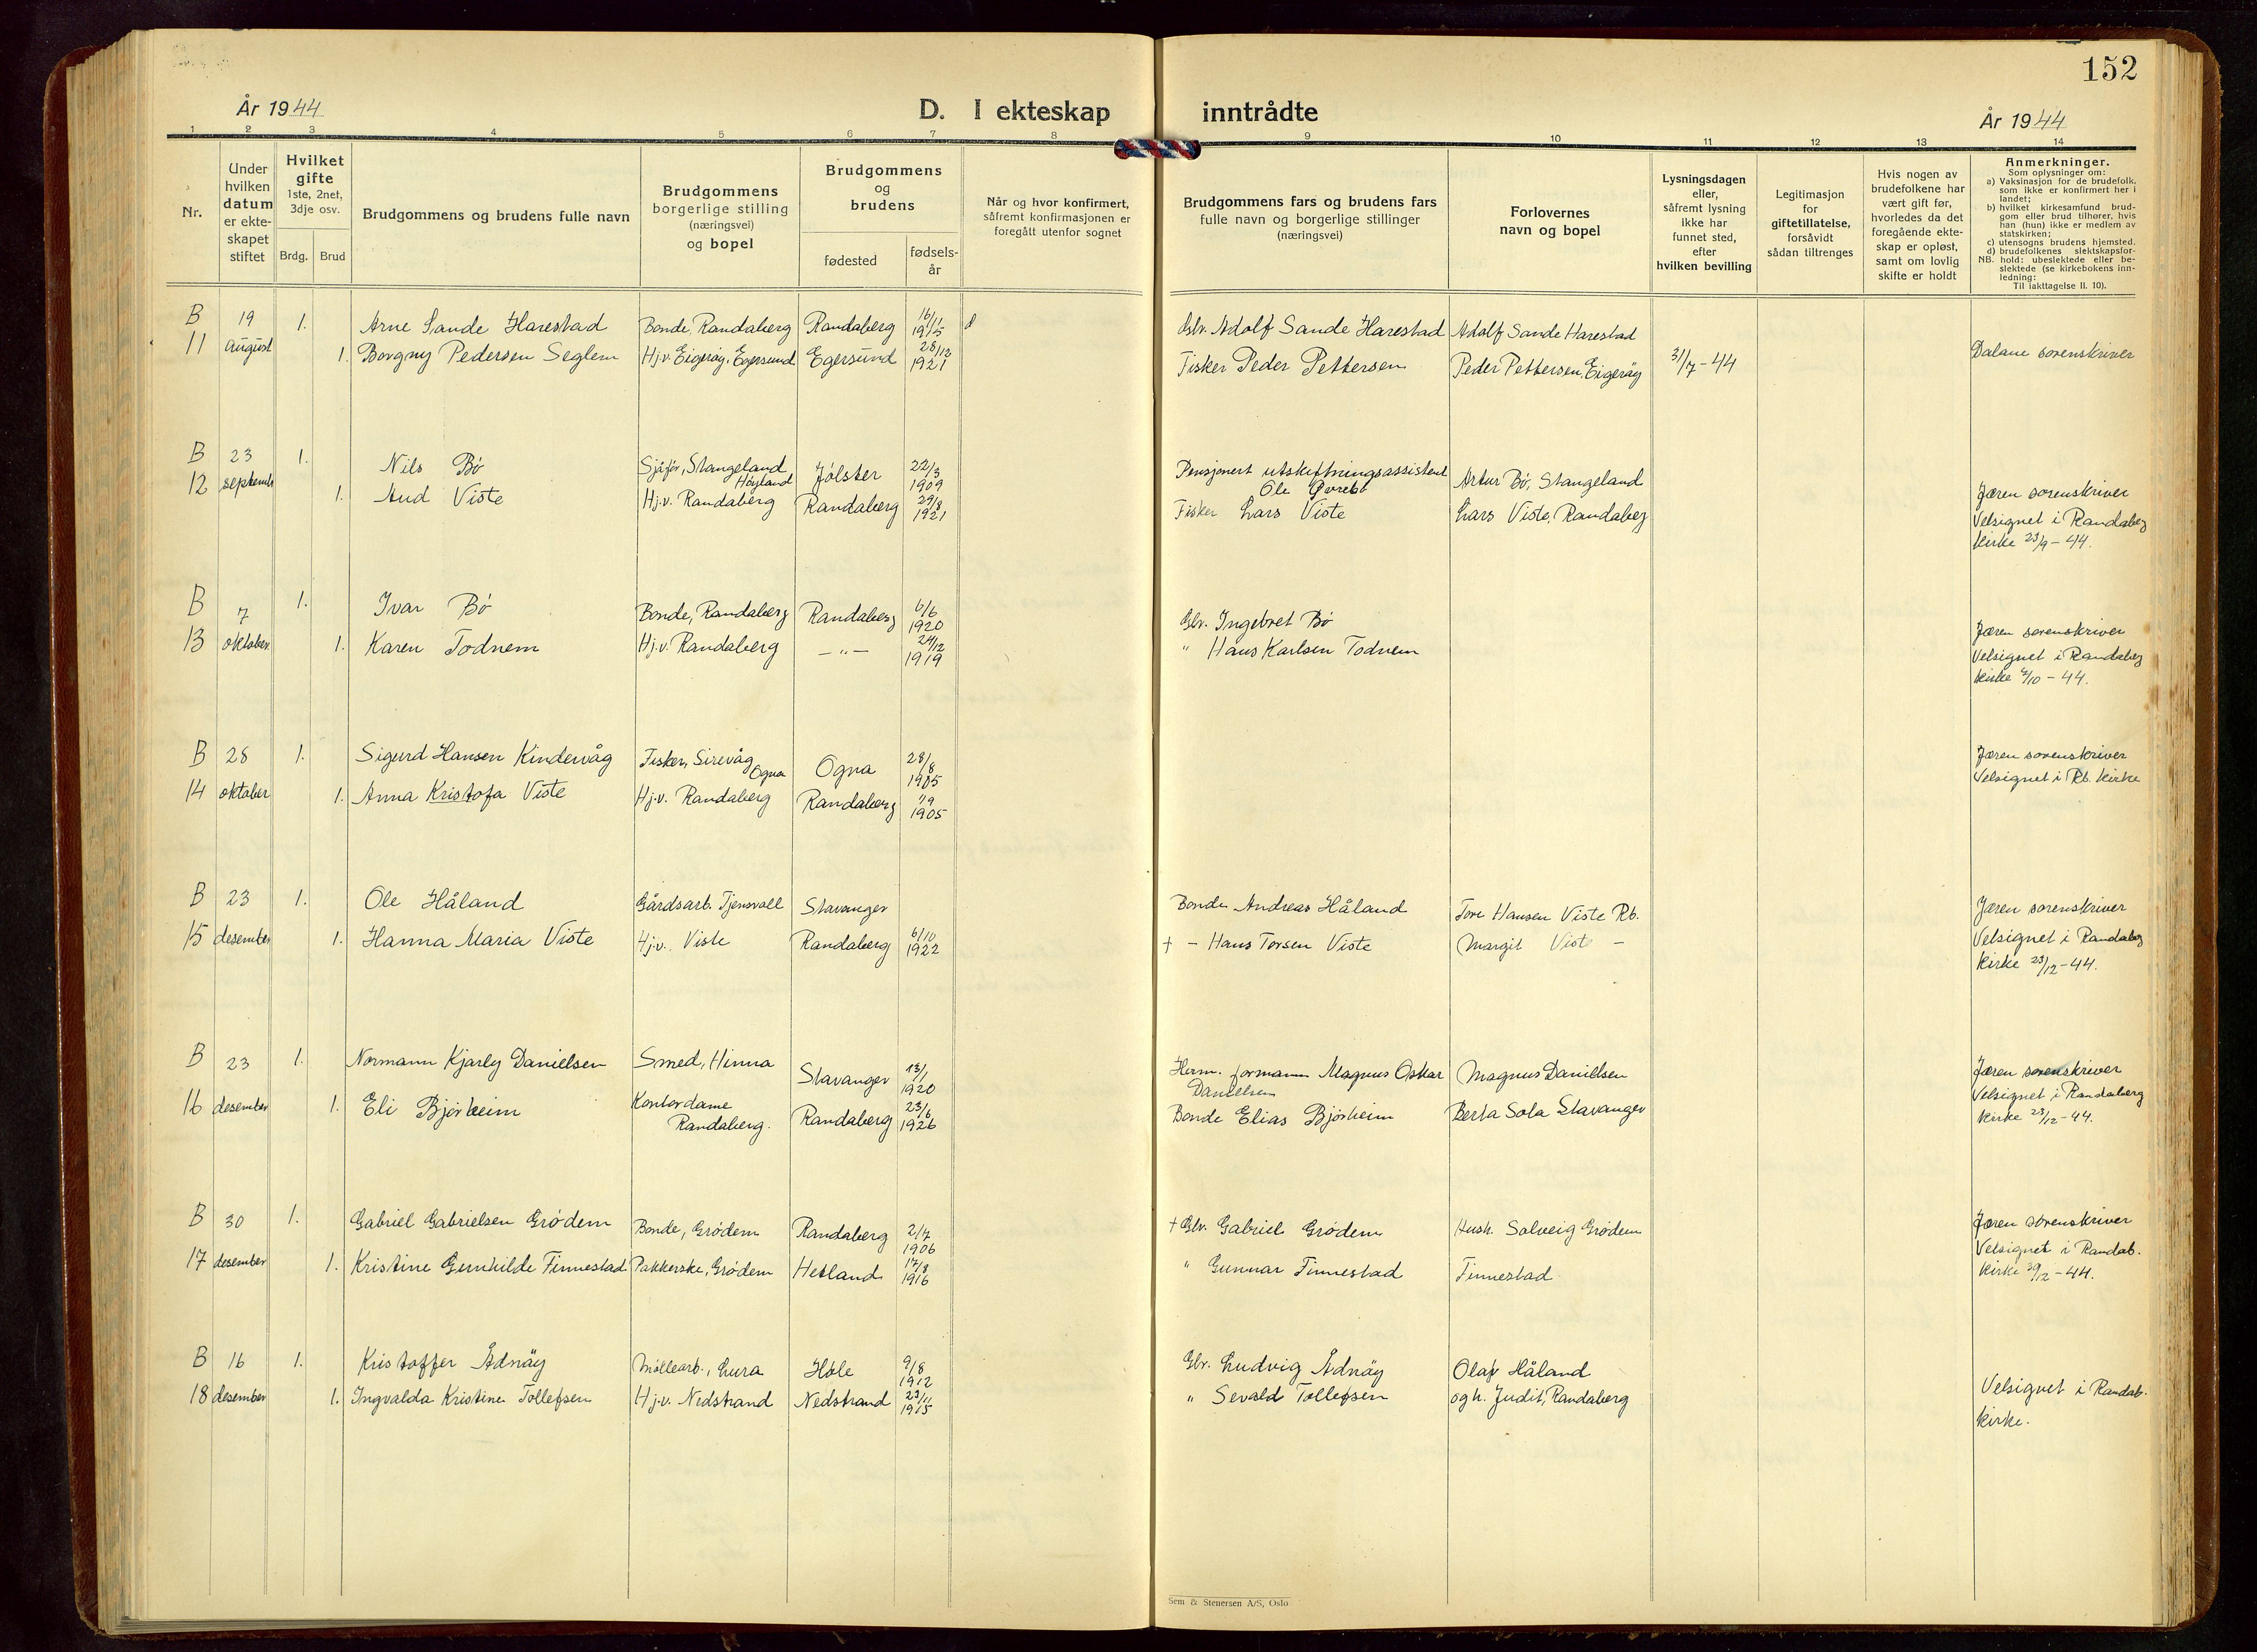 152
År 1944
D. I ekteskap inntrådte
År 1944
1 2 3 4 5 6 7 8 9 10 11 12 13 14
Nr.
Under hvilken datum er ekte-skapet stiftet
Hvilket gifte
1ste, 2net, 3dje osv.
Brdg. Brud
Brudgommens og brudens fulle navn
Brudgommens borgerlige stilling (næringsvei) og bopel
Brudgommens og brudens
fødested
fødsels-år
Når og hvor konfirmert, såfremt konfirmasjonen er foregått utenfor sognet
Brudgommens fars og brudens fars fulle navn og borgerlige stillinger (næringsvei)
Forlovernes navn og bopel
Lysningsdagen eller, såfremt lysning ikke har funnet sted, efter hvilken bevilling
Legitimasjon for giftetillatelse, forsåvidt sådan tiltrenges
Hvis nogen av brudefolkene har vært gift før, hvorledes da det foregående ekte-skap er opløst, samt om lovlig skifte er holdt
Anmerkninger.
Som oplysninger om:
a) Vaksinasjon for de brudefolk. som ikke er konfirmert her i landet;
b) hvilket kirkesamfund brud-gom eller brud tilhører, hvis han (hun) ikke er medlem av statskirken;
c) utensogns brudens hjemsted.
d) brudefolkenes slektskapsfor-hold: ubeslektede eller be-slektede (se kirkebokens inn-ledning:
NB.
Til iakttagelse II. 10).
B 19 1. Arne Sande Harestad Bonde, Randaberg Randaberg 16/11 1915 Gbr. Adolf Sande Harestad Adolf Sande Harestad
11 august 1. Borgny Pedersen Seglem Hj.v. Eigerøy, Egersund Egersund 28/12 1921 Fisker Peder Pettersen Peder Pettersen, Eigerøy 31/7-44 Dalane sorenskriver
B 23 1. Nils Bø Sjåfør, Stangeland Høyland Jølster 22/3 1909 Pensjonert utskiftningsassistent Ole Øvrebø Artur Bø, Stangeland
12 septemb 1. Aud Viste Hj.v. Randaberg Randaberg 29/8 1921 Fisker Lars Viste Lars Viste, Randaberg Jæren sorenskriver
Velsignet i Randaberg
kirke 23/9-44.
B 7 1. Ivar Bø Bonde, Randaberg Randaberg 6/6 1920 Gbr. Ingebret Bø
13 oktober 1. Karen Todnem Hj.v. Randaberg — " — 24/12 1919 " Hans Karlsen Todnem Jæren sorenskriver
Velsignet i Randaberg
kirke 7/10-44.
B 28 1. Sigurd Hansen Kindervåg Fisker, Sirevåg Ogna Ogna 28/8 1905 Jæren sorenskriver
14 oktober 1. Anna Kristofa Viste Hj.v. Randaberg Randaberg 1905 Velsignet i Rb. kirke
B 23 1. Ole Håland Gårdsarb. Tjensvoll Stavanger Bonde Andreas Håland Tore Hansen Viste Rb. Jæren sorenskriver
15 desember 1. Hanna Maria Viste Hj.v. Viste Randaberg 6/10 1922 † - Hans Torsen Viste Margit Viste - Velsignet i Randaberg
kirke 23/12-44.
B 23 1. Normann Kjarly Danielsen Smed, Hinna Stavanger 13/1 1920 Herm. formann Magnus Oskar Danielsen Magnus Danielsen Jæren sorenskriver
16 desember 1. Eli Bjørheim Kontordame Randaberg. Randaberg 23/6 1926 Bonde Elias Bjørheim Berta Sola Stavanger Velsignet i Randaberg
kirke 23/12-44.
B 30 1. Gabriel Gabrielsen Grødem Bonde, Grødem Randaberg 2/7 1906 † Gbr. Gabriel Grødem Hush. Solveig Grødem Jæren sorenskriver
17 desember 1. Kristine Gunhilde Finnestad Pakkerske, Grødem Hetland 17/8 1916 " Gunnar Finnestad Finnestad Velsignet i Randab.
kirke 30/12-44.
B 16 1. Kristoffer Ådnøy Møllearb., Lura Høle 9/8 1912 Gbr. Ludvig Ådnøy Olaf Håland
18 desember 1. Ingvalda Kristine Tollefsen Hj.v. Nedstrand Nedstrand 23/11 1915 " Sevald Tollefsen og h. Judit, Randaberg Velsignet i Randab.
kirke.
Sem & Stenersen A/S, Oslo